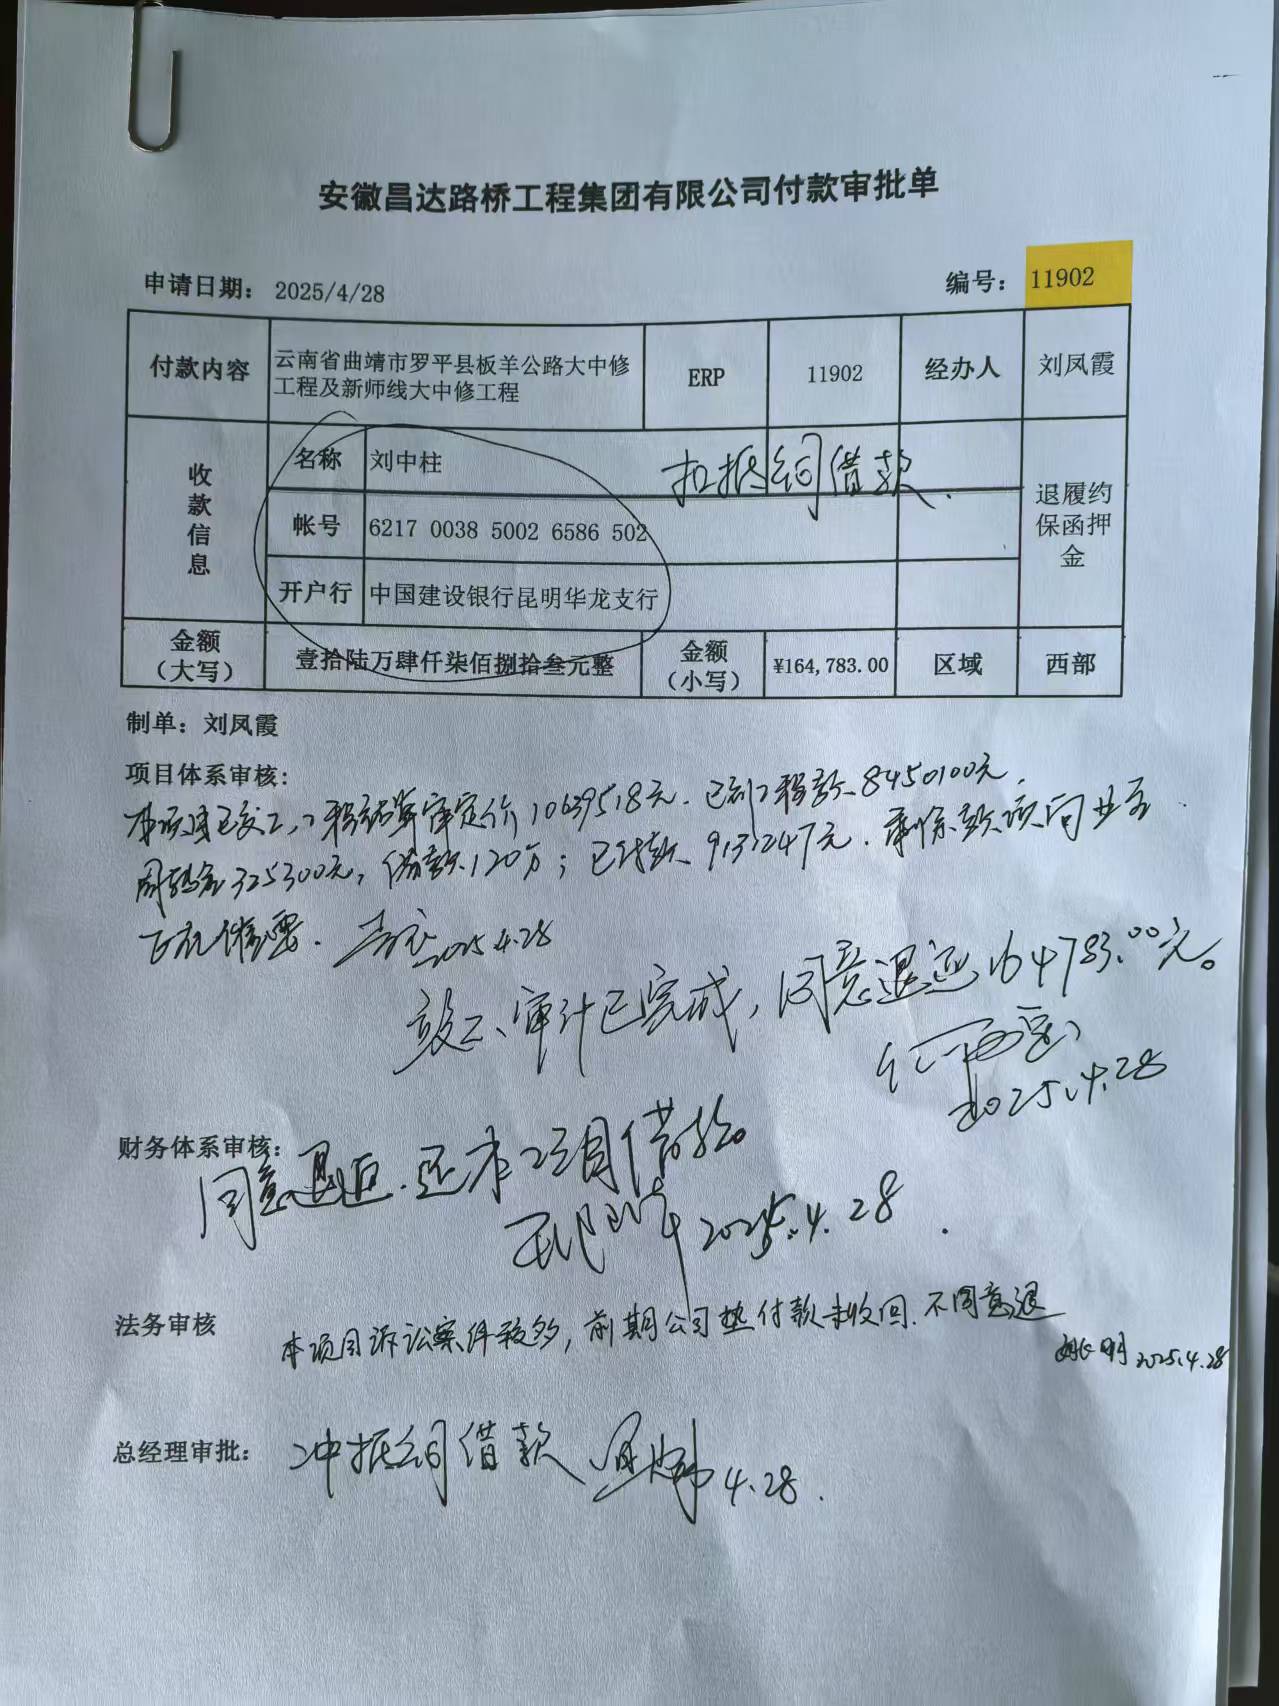 安徽昌达路桥工程集团有限公司付款审批单
申请日期： 2025/4/28 编号： 11902
付款内容 云南省曲靖市罗平县板羊公路大中修工程及新师线大中修工程 ERP 11902 经办人 刘凤霞
收款信息 名称 刘中柱 扣抵 借款. 退履约保函押金
帐号 6217 0038 5002 6586 502
开户行 中国建设银行昆明华龙支行
金额（大写） 壹拾陆万肆仟柒佰捌拾叁元整 金额（小写） ¥164,783.00 区域 西部
制单：刘凤霞
项目体系审核:
本项目已交工，工程结算审定价10639518元. 已到工程款8450100元.
周转金325300元，借款120万；已付款9131247元. 剩余款项向业主
2025.4.28
竣工、审计已完成，同意退还164783.00元。
2025.4.28
财务体系审核：
同意退还.还本项目借款。
2025.4.28.
法务审核
本项目诉讼案件较多，前期公司垫付款未收回.不同意退
姚明 2025.4.28
总经理审批：
冲抵 借款 4.28.